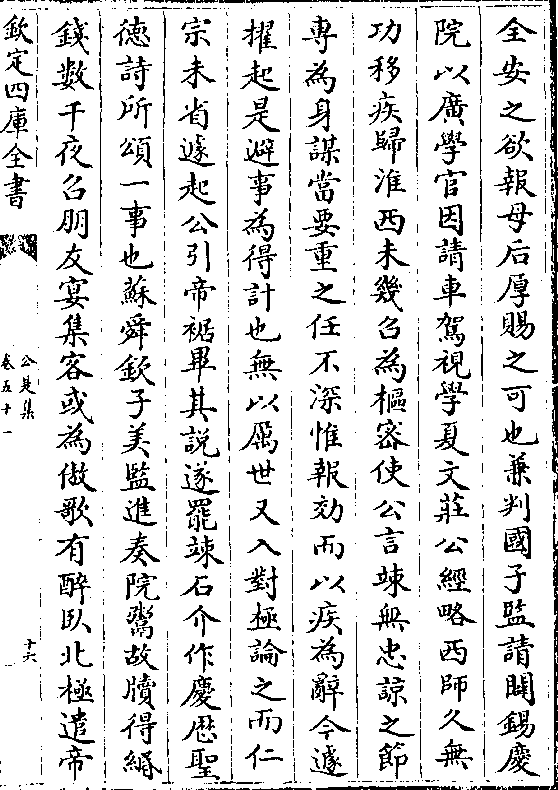 全安之欲報母后厚賜之可也兼判國子監請闢錫慶
院以廣學官因請車駕視學夏文莊公經略西師久無
功移疾歸淮西未幾召為樞密使公言竦無忠諒之節
專為身謀當要重之任不深惟報効而以疾為辭今遽
擢起是避事為得計也無以厲世又入對極論之而仁
宗未省遽起公引帝裾畢其説遂罷竦石介作慶厯聖
徳詩所頌一事也蘇舜欽子美監進奏院鬻故牘得緡
錢數千夜召朋友宴集客或為傲歌有醉臥北極遣帝
欽定四庫全書
公是集
卷五十一
十六